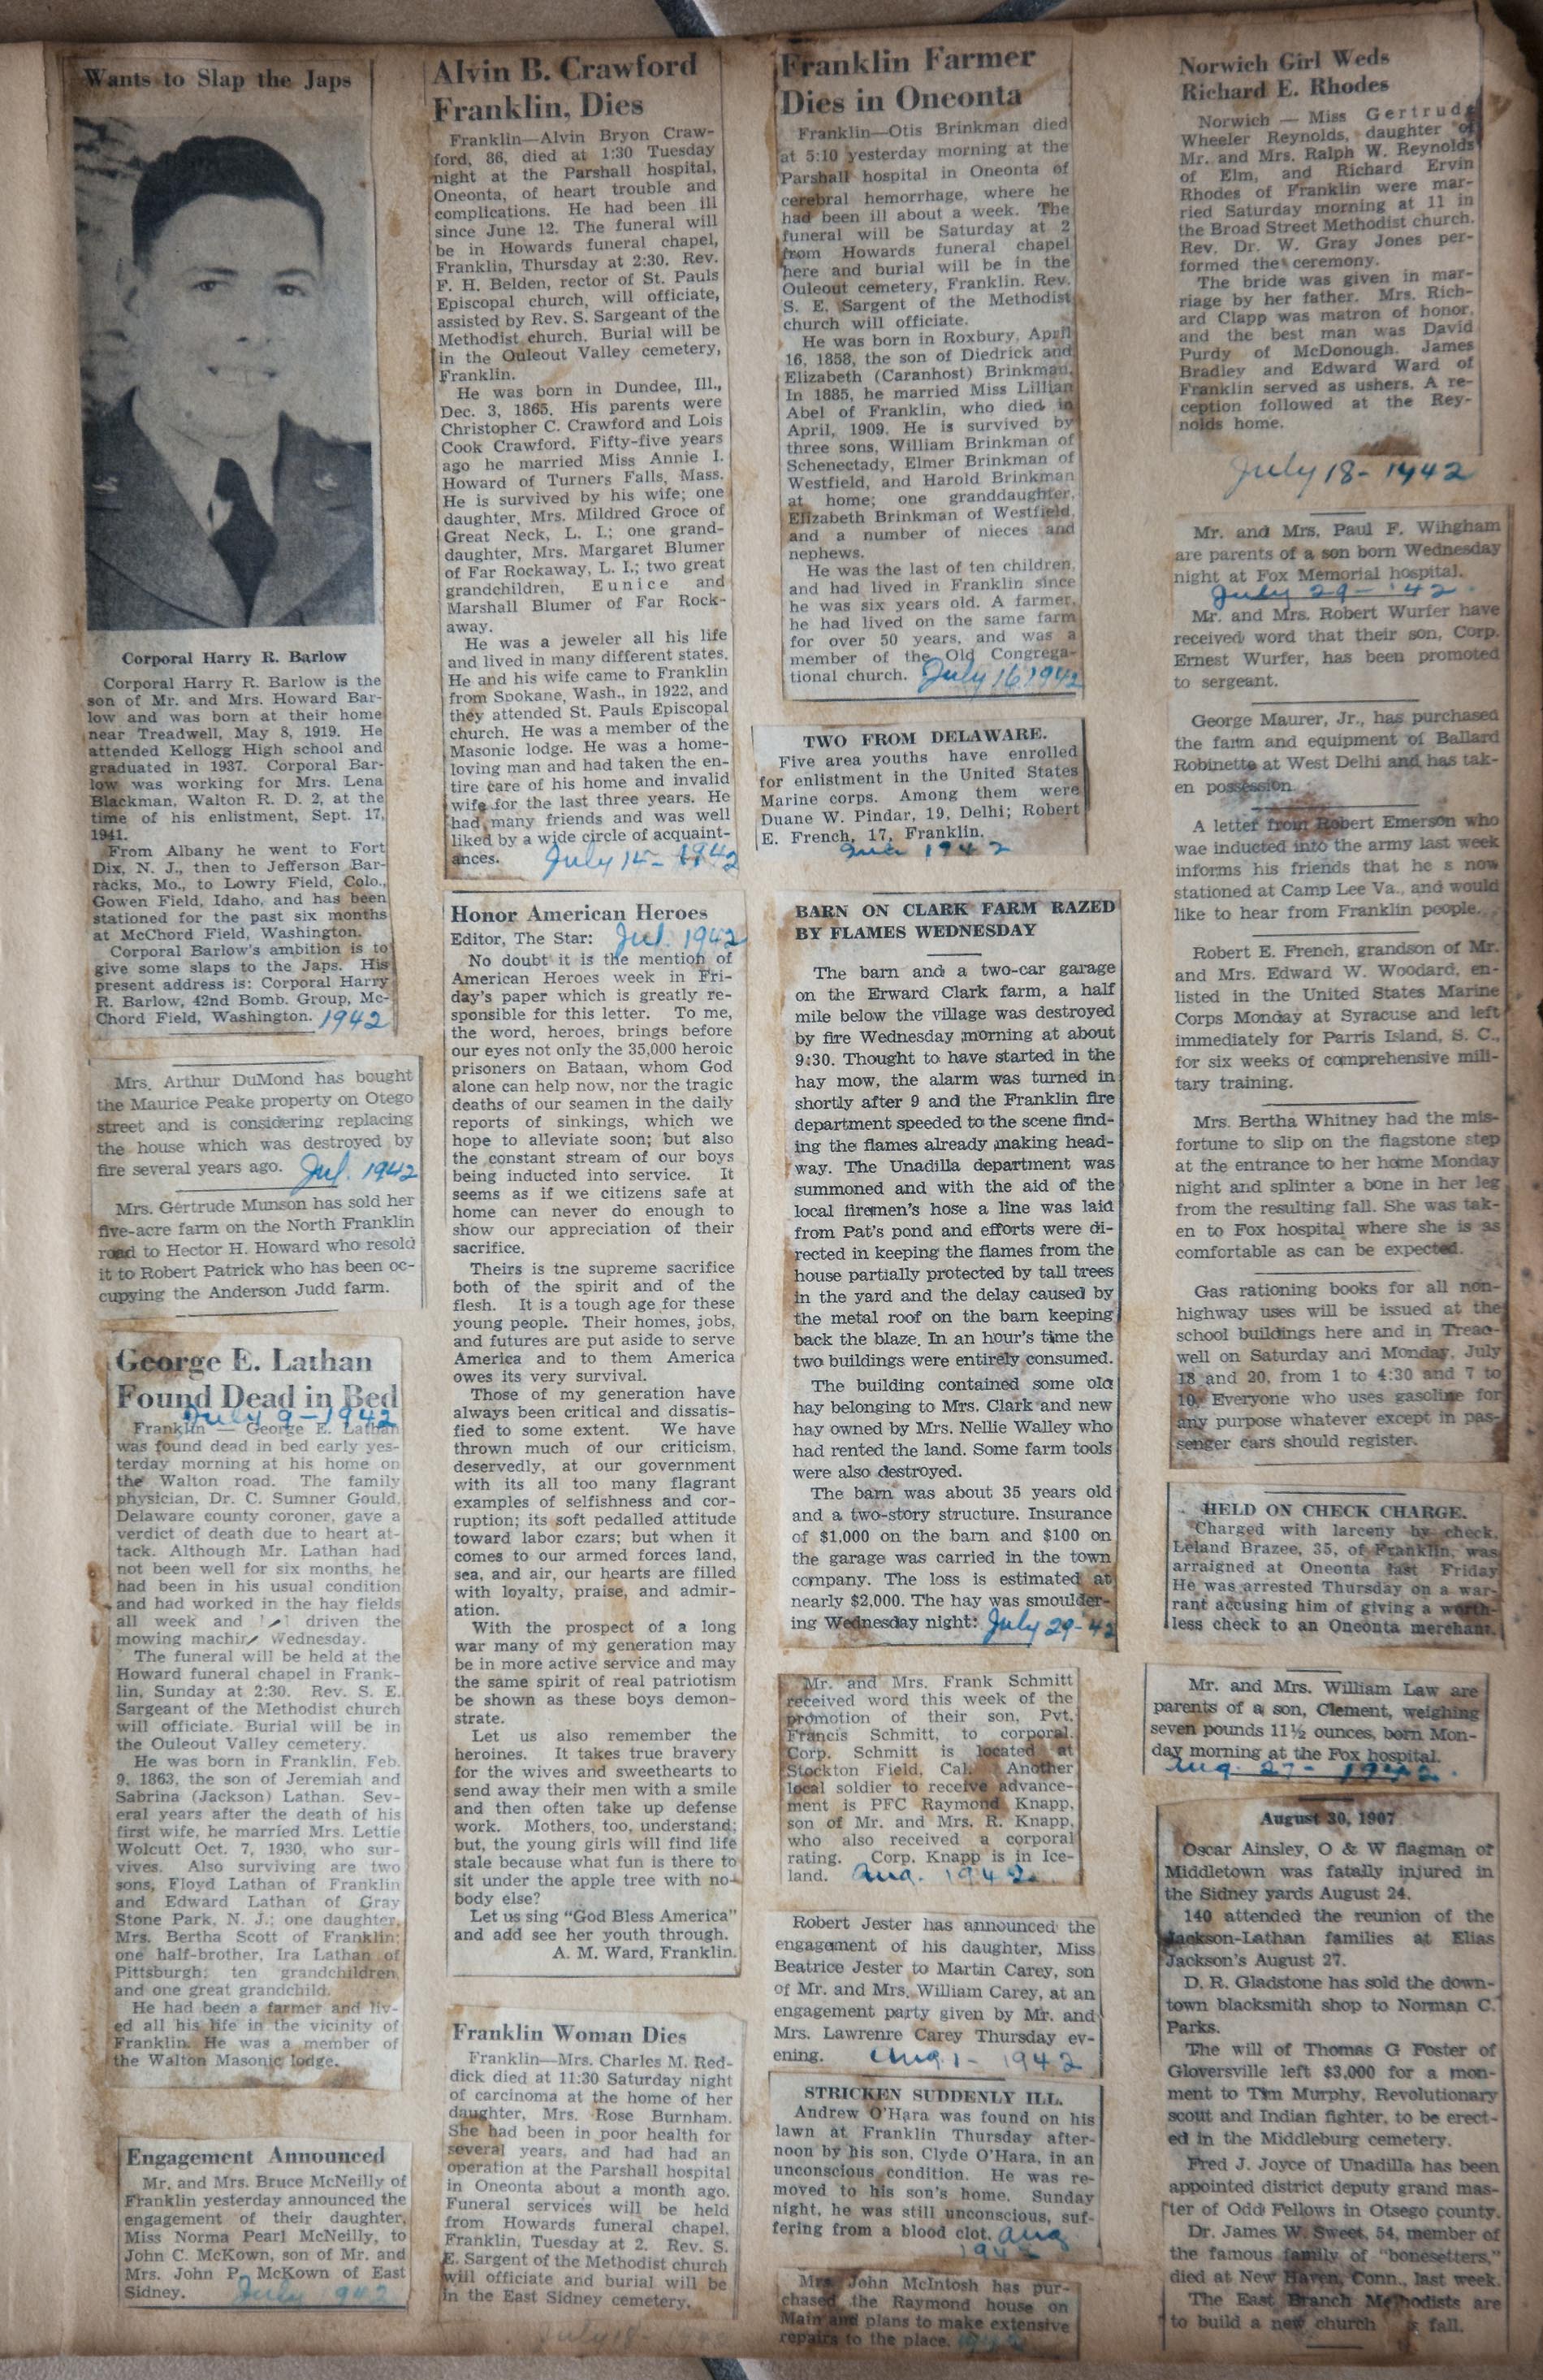 Wants to Slap the Japs
Corporal Harry R. Barlow
Corporal Harry R. Barlow is the
son of Mr. and Mrs. Howard Bar-
low and was born at their home
near Treadwell, May 8, 1919. He
attended Kellogg High school and
graduated in 1937. Corporal Bar-
low was working for Mrs. Lena
Blackman, Walton R. D. 2, at the
time of his enlistment, Sept. 17,
1941.
From Albany he went to Fort
Dix, N. J., then to Jefferson Bar-
racks, Mo., to Lowry Field, Colo.,
Gowen Field, Idaho, and has been
stationed for the past six months
at McChord Field, Washington.
Corporal Barlow's ambition is to
give some slaps to the Japs. His
present address is: Corporal Harry
R. Barlow, 42nd Bomb. Group, Mc-
Chord Field, Washington. 1942
Mrs. Arthur DuMond has bought
the Maurice Peake property on Otego
street and is considering replacing
the house which was destroyed by
fire several years ago. Jul. 1942
Mrs. Gertrude Munson has sold her
five-acre farm on the North Franklin
road to Hector H. Howard who resold
it to Robert Patrick who has been oc-
cupying the Anderson Judd farm.
George E. Lathan
Found Dead in Bed
July 9-1942
Franklin — George E. Lathan
was found dead in bed early yes-
terday morning at his home on
the Walton road. The family
physician, Dr. C. Sumner Gould,
Delaware county coroner, gave a
verdict of death due to heart at-
tack. Although Mr. Lathan had
not been well for six months, he
had been in his usual condition
and had worked in the hay fields
all week and driven the
mowing machin Wednesday.
The funeral will be held at the
Howard funeral chapel in Frank-
lin, Sunday at 2:30. Rev. S. E.
Sargeant of the Methodist church
will officiate. Burial will be in
the Ouleout Valley cemetery.
He was born in Franklin, Feb.
9, 1863, the son of Jeremiah and
Sabrina (Jackson) Lathan. Sev-
eral years after the death of his
first wife, he married Mrs. Lettie
Wolcutt Oct. 7, 1930, who sur-
vives. Also surviving are two
sons, Floyd Lathan of Franklin
and Edward Lathan of Gray
Stone Park, N. J.; one daughter,
Mrs. Bertha Scott of Franklin;
one half-brother, Ira Lathan of
Pittsburgh; ten grandchildren
and one great grandchild.
He had been a farmer and liv-
ed all his life in the vicinity of
Franklin. He was a member of
the Walton Masonic lodge.
Engagement Announced
Mr. and Mrs. Bruce McNeilly of
Franklin yesterday announced the
engagement of their daughter,
Miss Norma Pearl McNeilly, to
John C. McKown, son of Mr. and
Mrs. John P. McKown of East
Sidney. July 1942
Alvin B. Crawford
Franklin, Dies
Franklin—Alvin Bryon Craw-
ford, 86, died at 1:30 Tuesday
night at the Parshall hospital,
Oneonta, of heart trouble and
complications. He had been ill
since June 12. The funeral will
be in Howards funeral chapel,
Franklin, Thursday at 2:30. Rev.
F. H. Belden, rector of St. Pauls
Episcopal church, will officiate,
assisted by Rev. S. Sargeant of the
Methodist church. Burial will be
in the Ouleout Valley cemetery,
Franklin.
He was born in Dundee, Ill.,
Dec. 3, 1865. His parents were
Christopher C. Crawford and Lois
Cook Crawford. Fifty-five years
ago he married Miss Annie I.
Howard of Turners Falls, Mass.
He is survived by his wife; one
daughter, Mrs. Mildred Groce of
Great Neck, L. I.; one grand-
daughter, Mrs. Margaret Blumer
of Far Rockaway, L. I.; two great
grandchildren, Eunice and
Marshall Blumer of Far Rock-
away.
He was a jeweler all his life
and lived in many different states.
He and his wife came to Franklin
from Spokane, Wash., in 1922, and
they attended St. Pauls Episcopal
church. He was a member of the
Masonic lodge. He was a home-
loving man and had taken the en-
tire care of his home and invalid
wife for the last three years. He
had many friends and was well
liked by a wide circle of acquaint-
ances. July 1942
Honor American Heroes
Editor, The Star: Jul. 1942
No doubt it is the mention of
American Heroes week in Fri-
day's paper which is greatly re-
sponsible for this letter. To me,
the word, heroes, brings before
our eyes not only the 35,000 heroic
prisoners on Bataan, whom God
alone can help now, nor the tragic
deaths of our seamen in the daily
reports of sinkings, which we
hope to alleviate soon; but also
the constant stream of our boys
being inducted into service. It
seems as if we citizens safe at
home can never do enough to
show our appreciation of their
sacrifice.
Theirs is tne supreme sacrifice
both of the spirit and of the
flesh. It is a tough age for these
young people. Their homes, jobs,
and futures are put aside to serve
America and to them America
owes its very survival.
Those of my generation have
always been critical and dissatis-
fied to some extent. We have
thrown much of our criticism,
deservedly, at our government
with its all too many flagrant
examples of selfishness and cor-
ruption; its soft pedalled attitude
toward labor czars; but when it
comes to our armed forces land,
sea, and air, our hearts are filled
with loyalty, praise, and admir-
ation.
With the prospect of a long
war many of my generation may
be in more active service and may
the same spirit of real patriotism
be shown as these boys demon-
strate.
Let us also remember the
heroines. It takes true bravery
for the wives and sweethearts to
send away their men with a smile
and then often take up defense
work. Mothers, too, understand;
but, the young girls will find life
stale because what fun is there to
sit under the apple tree with no-
body else?
Let us sing "God Bless America"
and add see her youth through.
A. M. Ward, Franklin.
Franklin Woman Dies
Franklin—Mrs. Charles M. Red-
dick died at 11:30 Saturday night
of carcinoma at the home of her
daughter, Mrs. Rose Burnham.
She had been in poor health for
several years, and had had an
operation at the Parshall hospital
in Oneonta about a month ago.
Funeral services will be held
from Howards funeral chapel,
Franklin, Tuesday at 2. Rev. S.
E. Sargent of the Methodist church
will officiate and burial will be
in the East Sidney cemetery.
July 18-
Franklin Farmer
Dies in Oneonta
Franklin—Otis Brinkman died
at 5:10 yesterday morning at the
Parshall hospital in Oneonta of
cerebral hemorrhage, where he
had been ill about a week. The
funeral will be Saturday at 2
from Howards funeral chapel
here and burial will be in the
Ouleout cemetery, Franklin. Rev.
S. E. Sargent of the Methodist
church will officiate.
He was born in Roxbury, April
16, 1858, the son of Diedrick and
Elizabeth (Caranhost) Brinkman.
In 1885, he married Miss Lillian
Abel of Franklin, who died in
April, 1909. He is survived by
three sons, William Brinkman of
Schenectady, Elmer Brinkman of
Westfield, and Harold Brinkman
at home; one granddaughter,
Elizabeth Brinkman of Westfield,
and a number of nieces and
nephews.
He was the last of ten children,
and had lived in Franklin since
he was six years old. A farmer,
he had lived on the same farm
for over 50 years, and was a
member of the Old Congrega-
tional church. July 16, 1942
TWO FROM DELAWARE.
Five area youths have enrolled
for enlistment in the United States
Marine corps. Among them were
Duane W. Pindar, 19, Delhi; Robert
E. French, 17, Franklin.
1942
BARN ON CLARK FARM RAZED
BY FLAMES WEDNESDAY
The barn and a two-car garage
on the Erward Clark farm, a half
mile below the village was destroyed
by fire Wednesday morning at about
9:30. Thought to have started in the
hay mow, the alarm was turned in
shortly after 9 and the Franklin fire
department speeded to the scene find-
ing the flames already making head-
way. The Unadilla department was
summoned and with the aid of the
local firemen's hose a line was laid
from Pat's pond and efforts were di-
rected in keeping the flames from the
house partially protected by tall trees
in the yard and the delay caused by
the metal roof on the barn keeping
back the blaze. In an hour's time the
two buildings were entirely consumed.
The building contained some old
hay belonging to Mrs. Clark and new
hay owned by Mrs. Nellie Walley who
had rented the land. Some farm tools
were also destroyed.
The barn was about 35 years old
and a two-story structure. Insurance
of $1,000 on the barn and $100 on
the garage was carried in the town
company. The loss is estimated at
nearly $2,000. The hay was smoulder-
ing Wednesday night. July 29-42
Mr. and Mrs. Frank Schmitt
received word this week of the
promotion of their son, Pvt.
Francis Schmitt, to corporal.
Corp. Schmitt is located at
Stockton Field, Cal. Another
local soldier to receive advance-
ment is PFC Raymond Knapp,
son of Mr. and Mrs. R. Knapp,
who also received a corporal
rating. Corp. Knapp is in Ice-
land. Aug. 1942
Robert Jester has announced the
engagement of his daughter, Miss
Beatrice Jester to Martin Carey, son
of Mr. and Mrs. William Carey, at an
engagement party given by Mr. and
Mrs. Lawrenre Carey Thursday ev-
ening. Aug. 1- 1942
STRICKEN SUDDENLY ILL.
Andrew O'Hara was found on his
lawn at Franklin Thursday after-
noon by his son, Clyde O'Hara, in an
unconscious condition. He was re-
moved to his son's home. Sunday
night, he was still unconscious, suf-
fering from a blood clot. Aug
1942
Mrs. John McIntosh has pur-
chased the Raymond house on
Main and plans to make extensive
repairs to the place.
Norwich Girl Weds
Richard E. Rhodes
Norwich — Miss Gertrude
Wheeler Reynolds, daughter of
Mr. and Mrs. Ralph W. Reynolds
of Elm, and Richard Ervin
Rhodes of Franklin were mar-
ried Saturday morning at 11 in
the Broad Street Methodist church.
Rev. Dr. W. Gray Jones per-
formed the ceremony.
The bride was given in mar-
riage by her father. Mrs. Rich-
ard Clapp was matron of honor,
and the best man was David
Purdy of McDonough. James
Bradley and Edward Ward of
Franklin served as ushers. A re-
ception followed at the Rey-
nolds home.
July 18- 1942
Mr. and Mrs. Paul F. Wihgham
are parents of a son born Wednesday
night at Fox Memorial hospital.
July 29- '42
Mr. and Mrs. Robert Wurfer have
received word that their son, Corp.
Ernest Wurfer, has been promoted
to sergeant.
George Maurer, Jr., has purchased
the farm and equipment of Ballard
Robinette at West Delhi and has tak-
en possession.
A letter from Robert Emerson who
wae inducted into the army last week
informs his friends that he s now
stationed at Camp Lee Va., and would
like to hear from Franklin people.
Robert E. French, grandson of Mr.
and Mrs. Edward W. Woodard, en-
listed in the United States Marine
Corps Monday at Syracuse and left
immediately for Parris Island, S. C.,
for six weeks of comprehensive mili-
tary training.
Mrs. Bertha Whitney had the mis-
fortune to slip on the flagstone step
at the entrance to her home Monday
night and splinter a bone in her leg
from the resulting fall. She was tak-
en to Fox hospital where she is as
comfortable as can be expected.
Gas rationing books for all non-
highway uses will be issued at the
school buildings here and in Tread-
well on Saturday and Monday, July
18 and 20, from 1 to 4:30 and 7 to
10. Everyone who uses gasoline for
any purpose whatever except in pas-
senger cars should register.
HELD ON CHECK CHARGE.
Charged with larceny by check,
Leland Brazee, 35, of Franklin, was
arraigned at Oneonta last Friday
He was arrested Thursday on a war-
rant accusing him of giving a worth-
less check to an Oneonta merchant.
Mr. and Mrs. William Law are
parents of a son, Clement, weighing
seven pounds 11½ ounces, born Mon-
day morning at the Fox hospital.
Aug. 27- 1942
August 30, 1907
Oscar Ainsley, O & W flagman of
Middletown was fatally injured in
the Sidney yards August 24.
140 attended the reunion of the
Jackson-Lathan families at Elias
Jackson's August 27.
D. R. Gladstone has sold the down-
town blacksmith shop to Norman C.
Parks.
The will of Thomas G Foster of
Gloversville left $3,000 for a mon-
ment to Tim Murphy, Revolutionary
scout and Indian fighter, to be erect-
ed in the Middleburg cemetery.
Fred J. Joyce of Unadilla has been
appointed district deputy grand mas-
ter of Odd Fellows in Otsego county.
Dr. James W. Sweet, 54, member of
the famous family of "bonesetters,"
died at New Haven, Conn., last week.
The East Branch Methodists are
to build a new church fall.